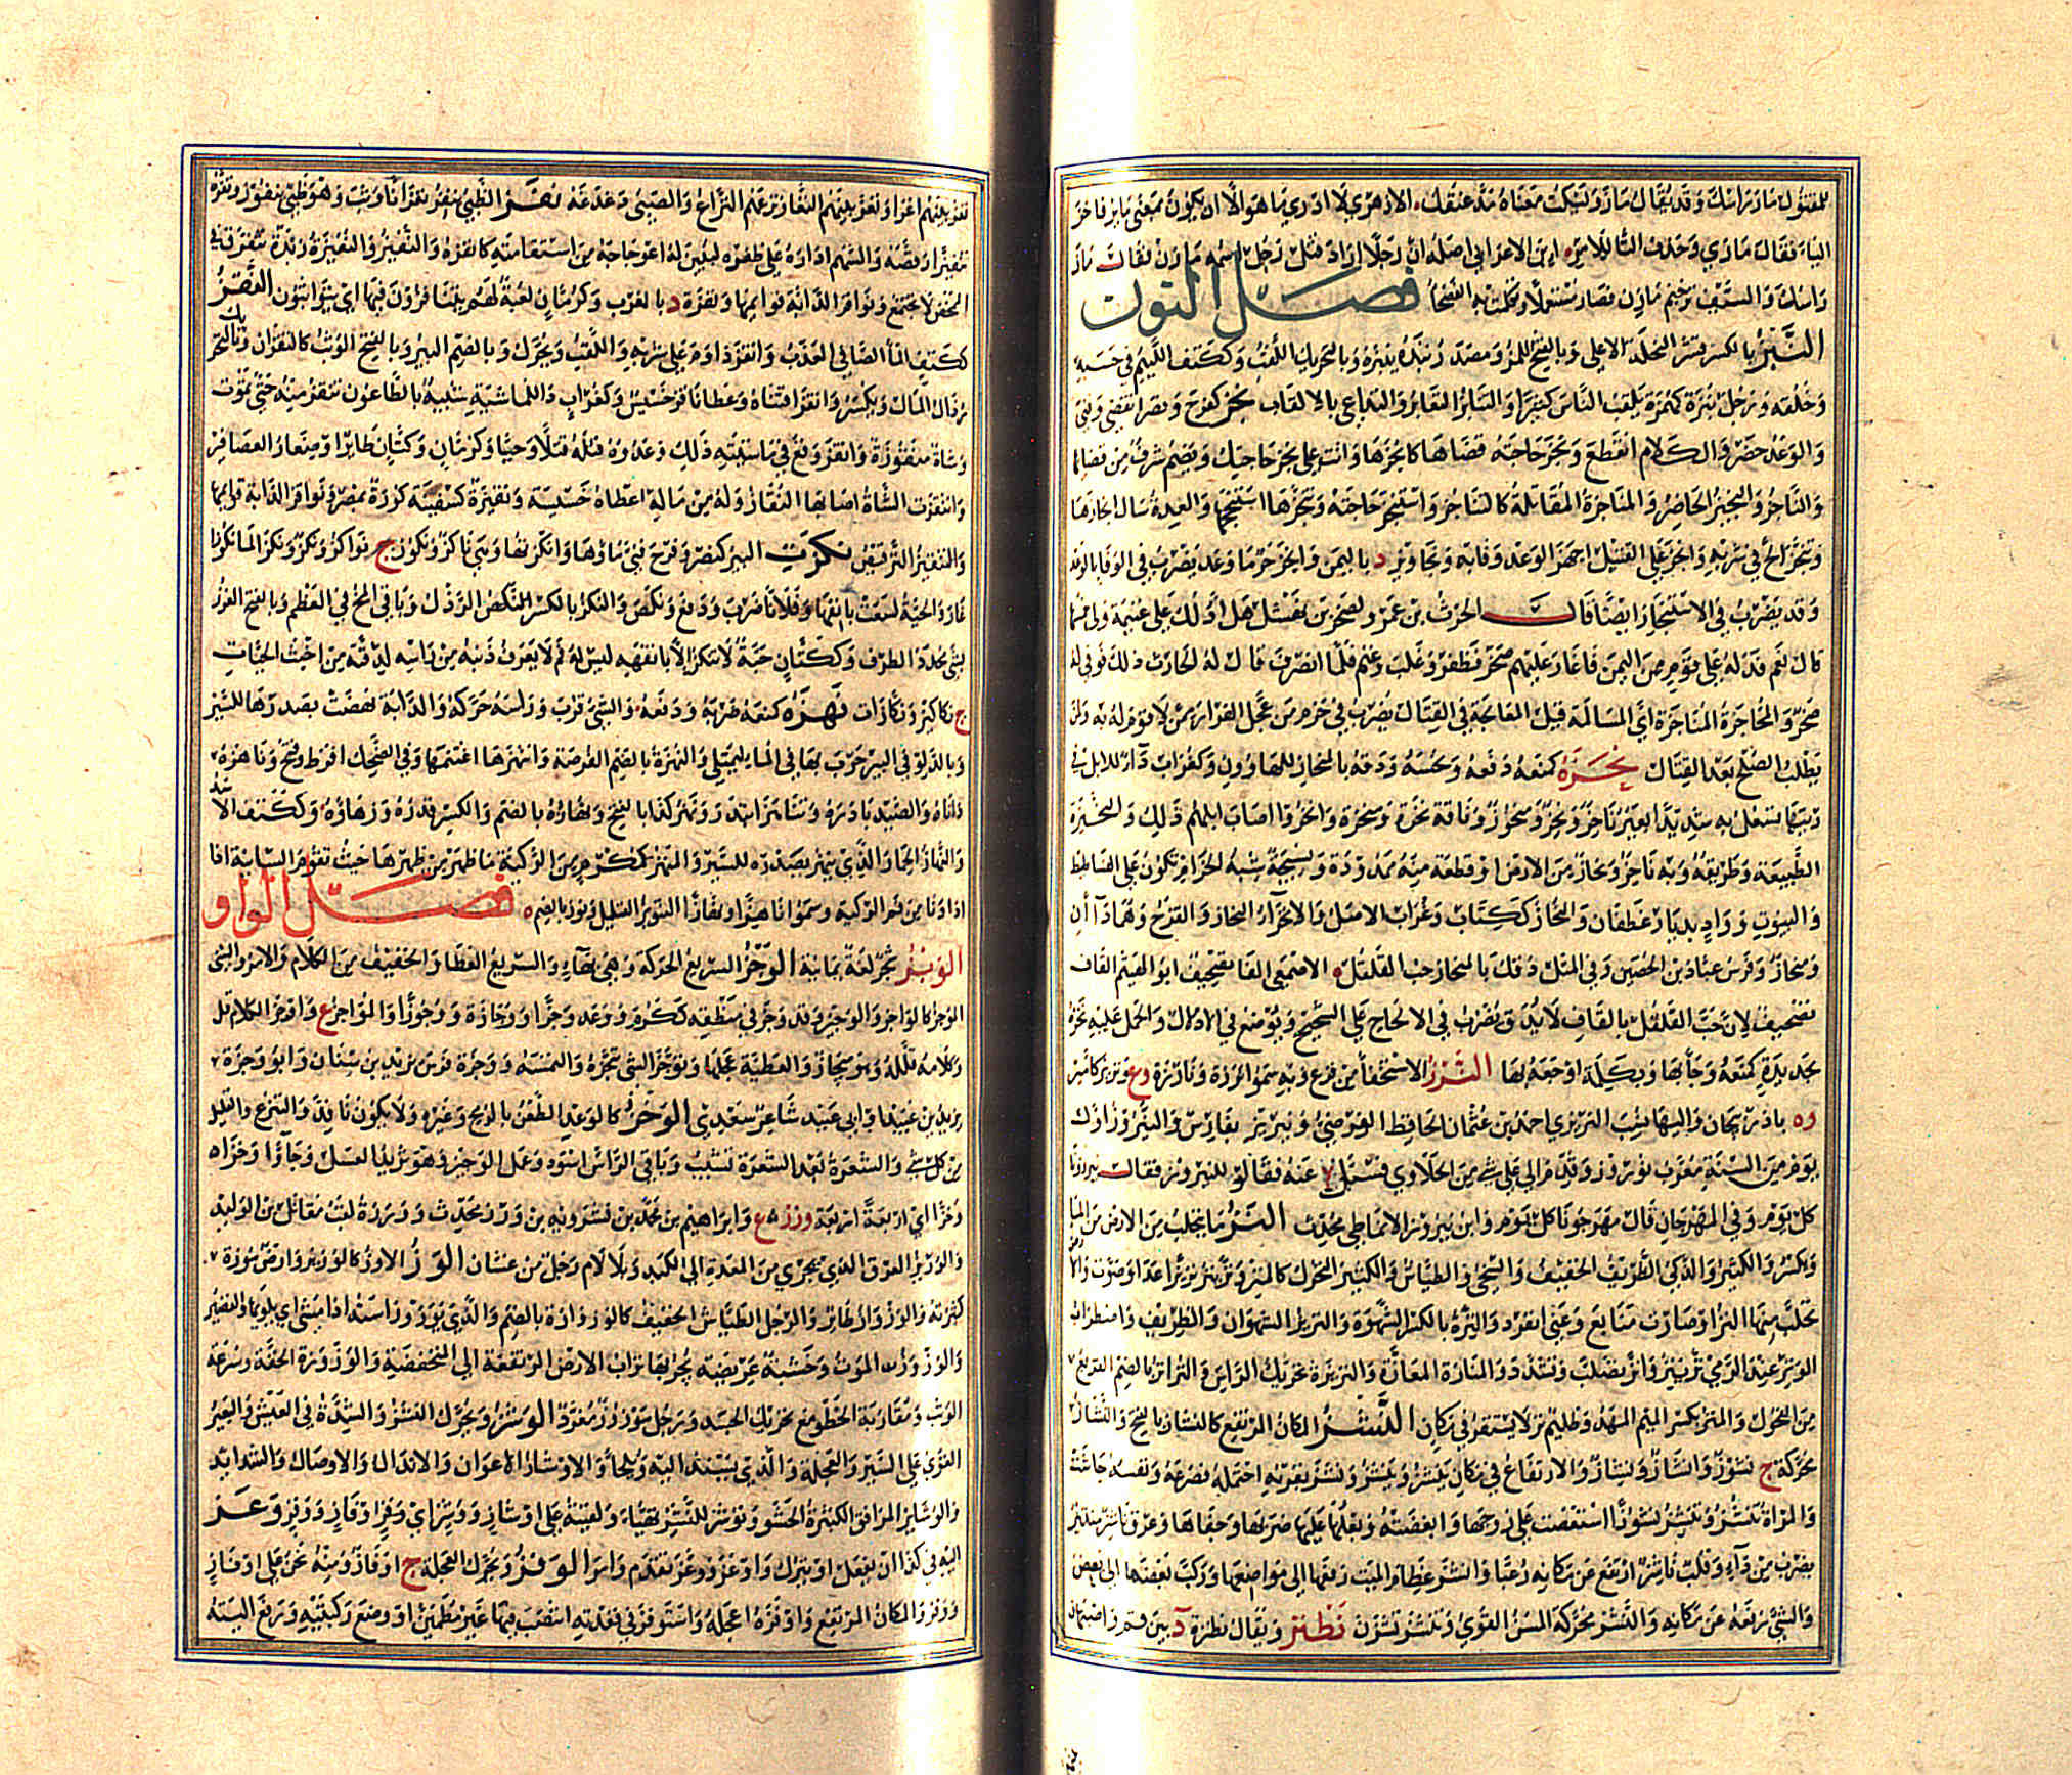 للمقتول ماز راسك وقد يقال ماز وتسكت معناه مد عنقك الازهري لا ادري ما هو الا ان يكون بمعنى مايز فاخر
الياء فقال مازي وحذف الياء للامر ابن الاعرابي اصله ان رجلا اراد قتل رجل اسمه مازن فقال ماز
راسك والسيف ترخيم مازن فصار مستعملا وتكلمت به الفصحا فصل النون
النبز بالكسر قشر النخلة الاعلى وبالفتح اللمز ومصدر نبزه ينبزه وبالتحريك اللقب وككتف اللئيم في حسبه
وخلقه ورجل نبزة كهمزة يلقب الناس كثيرا والتنابز التعاير والتداعي بالالقاب نجز كفرح ونصر انقضى وفني
والوعد حضر والكلام انقطع ونجز حاجته قضاها كانجزها وانت على نجز حاجتك ويضم شرف من قضائها
والناجز والنجيز الحاضر والمناجزة المقاتلة كالتناجز واستنجز حاجته وتنجزها استنجحها والعدة سال انجازها
وتنجز الح في شربه وانجز على القتيل اجهز الوعد وفا به ونجاويز د باليمن وانجز حر ما وعد يضرب في الوفا بالوعد
وقد يضرب في الاستنجاز ايضا قال الحرث بن عمرو لصخر بن نهشل هل ادلك على غنيمة ولي خمسها
قال نعم فدله على قوم من اليمن فاغار عليهم صخر فظفر وغلب وغنم فلما انصرف قال له الحارث ذلك فوفى له
صخر والمحاجزة المناجزة اي المسالمة قبل المعالجة في القتال يضرب في حزم من عجل الفرار ممن لا قوام له به ولمن
يطلب الصلح بعد القتال نحزه كمنعه دفعه ونخسه ودقه بالمنحاز للهاوون وكغراب داء للابل في
رئتها تسعل به شديدا بعير ناحز ونحز ومنحوز وناقة نحزة ومنحزة وانحزوا اصاب ابلهم ذلك والنحيزة
الطبيعة وطريقة ونحاز من الارض او قطعة منه ممدودة ونسيجة شبه الحزام تكون على الفساطيط
والبيوت وواد بديار غطفان والنحاز ككتاب وغراب الاصل والانحزان النحاز والقرح وهما داآن
ومنحاز فرس عباد بن الحصين وفي المثل دقك بالمنحاز حب القلقل الاصمعي الفا تصحيف ابو الهيثم القاف
تصحيف لان حب القلقل بالقاف لا يدق يضرب في الالحاح على الشحيح ويوضع في الادلال والحمل عليه نخزه
بحديدة كمنعه وجاه بها وبكلمة اوجعه بها النرز الاستخفا من فزع وبه سموا نرزة ونارزة وع
وه باذربيجان واليها نسب النريزي احمد بن عثمان الحافظ الفرضي ونيريز بفارس والنيروز اول
يوم من السنة معرب نوروز وقدم الى علي شي من الحلاوي فسئل عنه فقالوا للنيروز فقال نيرزونا
كل يوم وفي المهرجان قال مهرجونا كل يوم وابن نيروز الانماطي محدث النز ما يتحلب من الارض من الماء
ويكسر والكثير والذكي الظريف الخفيف والسخي والطياش والكثير التحرك كالمنز ونز ينز نزيزا عدا وصوت والارض
تحلب منها النز او صارت منابع وعني انفرد والنزة بالكسر الشهوة والنزيز الشهوان والظريف واضطراب
الوتر عند الرمي ونزيز وانز تصلب وتشدد والمنازة المعازة والنزنزة تحريك الراس والنزانز بالضم القريع
من الفحول والمنز بكسر الميم المهد وظليم نز لا يستقر في مكان النشز المكان المرتفع كالنشاز بالفتح والنشاز
محركة ج نشوز وانشاز ونشاز والارتفاع في مكان ينشز وينشز ونشز بقرنه احتمله فصرعه ونفسه جاشت
والمراة تنشز وتنشز نشوزا استعصت على زوجها وابغضته وبعلها عليها ضربها وجفاها وعرق ناشز منتبر
يضرب من داء وقلب ناشز ارتفع عن مكانه رعبا وانشز عظام الميت رفعها الى مواضعها وركب بعضها الى بعض
والشي رفعه عن مكانه والنشز محركة المسن القوي وتنشز تشزن نطنز ويقال نطنزة د بين قم واصبهان
نغز بينهم اغرا ونغز بينهم النغاز نزغهم النزاغ والصبي دغدغه نفز الظبي ينفز نفزانا وثب وهو ظبي نفوز ونفزه
تنفيزا رقصه والسهم اداره على ظفره ليبين له اعوجاجه من استقامته كانفزه والنفيز والنفيزة زبدة تتفرق في
المخض لا تجتمع ونوافز الدابة قوائمها ونفزة د بالمغرب وكرمان لعبة لهم يتنافزون فيها اي يتواثبون النقز
ككتف الماء الصافي العذب وانقز داوم على شربه واللقب ويحرك وبالضم البير وبالفتح الوثب كالنقزان وبالتحريك
رذال المال ويكسر وانقز اقتناه وعطا ناقز خسيس وكغراب داء للماشية شبيه بالطاعون تنقز منه حتى تموت
وشاة منقوزة وانقز وقع في ماشيته ذلك وعدوه قتله قتلا وحيا وكرمان وكتان طاير او صغار العصافير
وانتقزت الشاة اصابها النقاز وله من ماله اعطاه خسيسه ونقيزة كسفينة كورة بمصر ونواقز الدابة قوايمها
والتنقيز الترقيص نكزت البير كنصر وفرح فني ماؤها وانكزتها وهي ناكز ونكوز ج نواكز ونكز ونكز الماء نكوزا
غار والحية لسعت بانفها وفلانا ضرب ودفع ونكص والنكز بالكسر النكص الرذل وباقي المخ في العظم وبالفتح الغرز
بشي محدد الطرف وككتان حية لا تنكز الا بانفها ليس له فم لا يعرف ذنبه من راسه لدقته من اخبث الحيات
ج نكاكيز ونكازات نهزه كمنعه ضربه ودفعه والشي قرب وراسه حركه والدابة نهضت بصدرها للسير
وبالدلو في البير ضرب بها في الماء لتمتلي والنهزة بالضم الفرصة وانتهزها اغتنمها وفي الضحك افرط وقبح وناهزه
داناه والصيد بادره وتناهزا ابتدرا ونهز كذا بالفتح ونهازه بالضم والكسر قدره وزهاؤه وككتف الاسد
والنهاز الحمار الذي ينهز بصدره للسير والمنهز كمكرم من الركية ما ظهر من ظهرها حيث تقوم السانية اذا
دنا من فم الركية وسموا ناهزا ونهازا التنويز التقليل ونوز بالضم ه فصل الواو
الوتز شجر لغة يمانية الوجز السريع الحركة وهي بهاء والسريع العطا والخفيف من الكلام والامر والشي
الموجز كالواجز والوجيز وقد وجز في منطقه ككرم ووعد وجزا ووجازة ووجوزا والمواجز ع واوجز الكلام قل
وكلامه قلله وهو ميجاز والعطية عجلها وتوجز الشي تنجزه والتمسه ووجزة فرس يزيد بن سنان وابو وجزة
يزيد بن عبيد او ابي عبيد شاعر سعدي الوخز كالوعد الطعن بالرمح وغيره ولا يكون نافذا والتبزيغ والقليل
من كل شي والشعرة بعد الشعرة تشيب وباقي الراس اسود وعمل الوخيز وهو ثريد العسل وجاؤا وخزا
وخزا اي اربعة اربعة ورز ع وابراهيم بن محمد بن بشرويه بن ورز محدث ووريزة لقب مقاتل بن الوليد
والوريز العرق الذي يجري من المعدة الى الكبد وبلا لام رجل من غسان الوز الاوز كالوزين وارض موزة
كثيرته والوزواز طاير والرجل الطياش الخفيف كالوزوازة بالضم والذي يوزوز استه اذا مشى اي يلويها والقصير
والوزوز الموت وخشبة عريضة يجر بها تراب الارض المرتفعة الى المنخفضة والوزوزة الخفة وسرعة
الوثب ومقاربة الخطو مع تحريك الجسد ورجل موزوز مغرد الوشز ويحرك النشز والشدة في العيش والبعير
القوي على السير والعجلة والذي يستند اليه ويلجأ والاوشاز الاعوان والاندال والاوصال والشدائد
والوشائز المرافق الكثيرة الحشو وتوشز للشر تهيا ولقيته على اوشاز ووشز اي وفز او قاز ووفز وعز
اليه في كذا ان يفعل او يترك واوعز ووعز تقدم وامر الوفز ويحرك العجلة ج اوفاز ومنه نحن على اوفاز
ووفز والمكان المرتفع واوفزه اعجله واستوفز في قعدته انتصب فيها غير مطمئن او وضع ركبتيه ورفع اليتيه